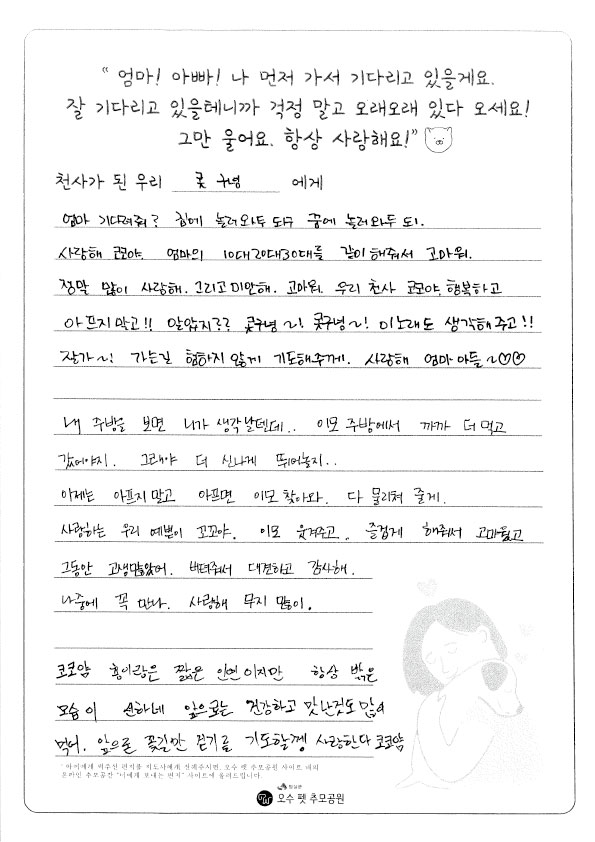 “ 엄마! 아빠! 나 먼저 가서 기다리고 있을게요.
잘 기다리고 있을테니까 걱정 말고 오래오래 있다 오세요!
그만 울어요. 항상 사랑해요!”
천사가 된 우리 꽃구녕 에게
엄마 기다려줘? 힘에 놀러와두 되구 꿈에 놀러와두 되.
사랑해 코코야. 엄마의 10대20대30대를 같이 해줘서 고마워.
정말 많이 사랑해. 그리고 미안해. 고마워 우리 천사 코코야. 행복하고
아프지말고!! 알았지?? 꽃구녕~! 꽃구녕~! 이노래도 생각해주고!!
잘가~! 가는길 험하지 않게 기도해줄께. 사랑해 엄마아들~♡♡
내 주방을 보면 니가 생각날텐데.. 이모 주방에서 까까 더 먹고
갔어야지. 그래야 더 신나게 뛰어놀지..
이제는 아프지말고 아프면 이모 찾아와. 다 물리쳐 줄게.
사랑하는 우리 예쁜이 꼬꼬야. 이모 웃겨주고. 즐겁게 해줘서 고마웠고
그동안 고생많았어. 버텨줘서 대견하고 감사해.
나중에 꼭 만나. 사랑해 무지 많이.
코코얌 홍이랑은 짧은 인연이지만 항상 밝은
모습이 선하네 앞으로는 건강하고 맛난것도 많이
먹어. 앞으로 꽃길만 걷기를 기도할께 사랑한다 코코얌
* 아이에게 적어주신 편지를 지도사에게 전해주시면, 오수 펫 추모공원 사이트 내의
온라인 추모공간 "너에게 보내는 편지" 사이트에 올려드립니다.
오수 펫 추모공원